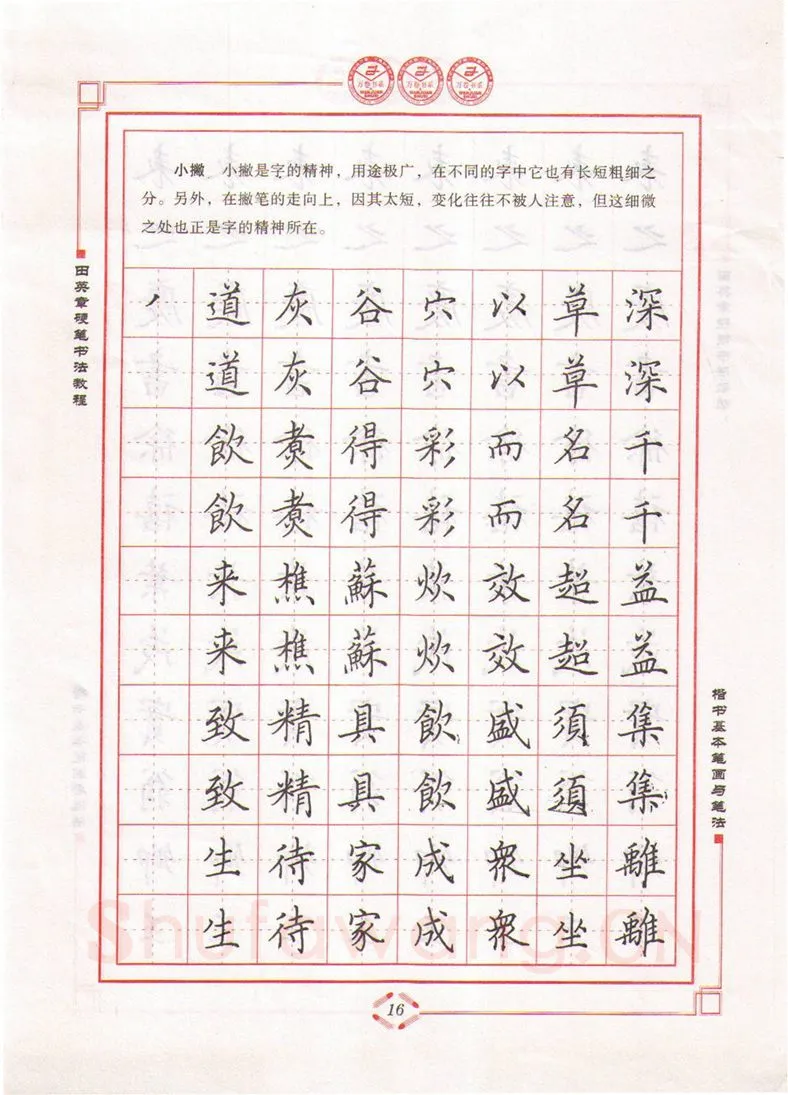 小撇 小撇是字的精神，用途极广，在不同的字中它也有长短粗细之
分。另外，在撇笔的走向上，因其太短，变化往往不被人注意，但这细微
之处也正是字的精神所在。
田英章硬笔书法教程
丿道灰谷穴以草深
道灰谷穴以草深
飲煮得彩而名千
飲煮得彩而名千
来樵蘇炊效超益
来樵蘇炊效超益
致精具飲盛須集
致精具飲盛須集
生待家成衆坐離
生待家成衆坐離
楷书基本笔画与笔法
Shufawang.CN
16